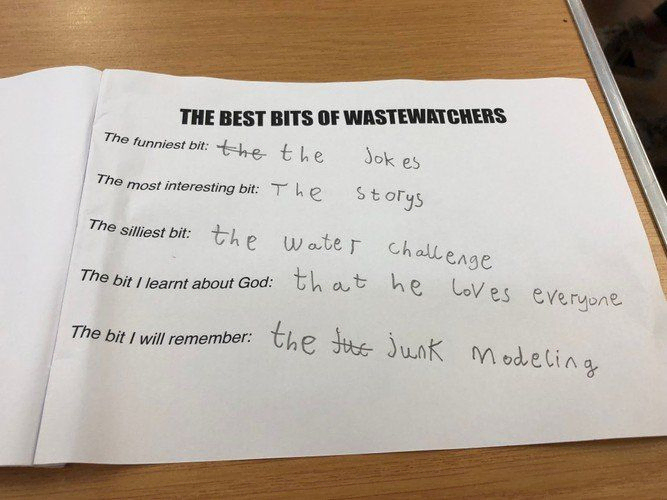 THE BEST BITS OF WASTEWATCHERS
The funniest bit: the the Jokes
The most interesting bit: The storys
The silliest bit: the water challenge
The bit I learnt about God: that he loves everyone
The bit I will remember: the juc junk modeling